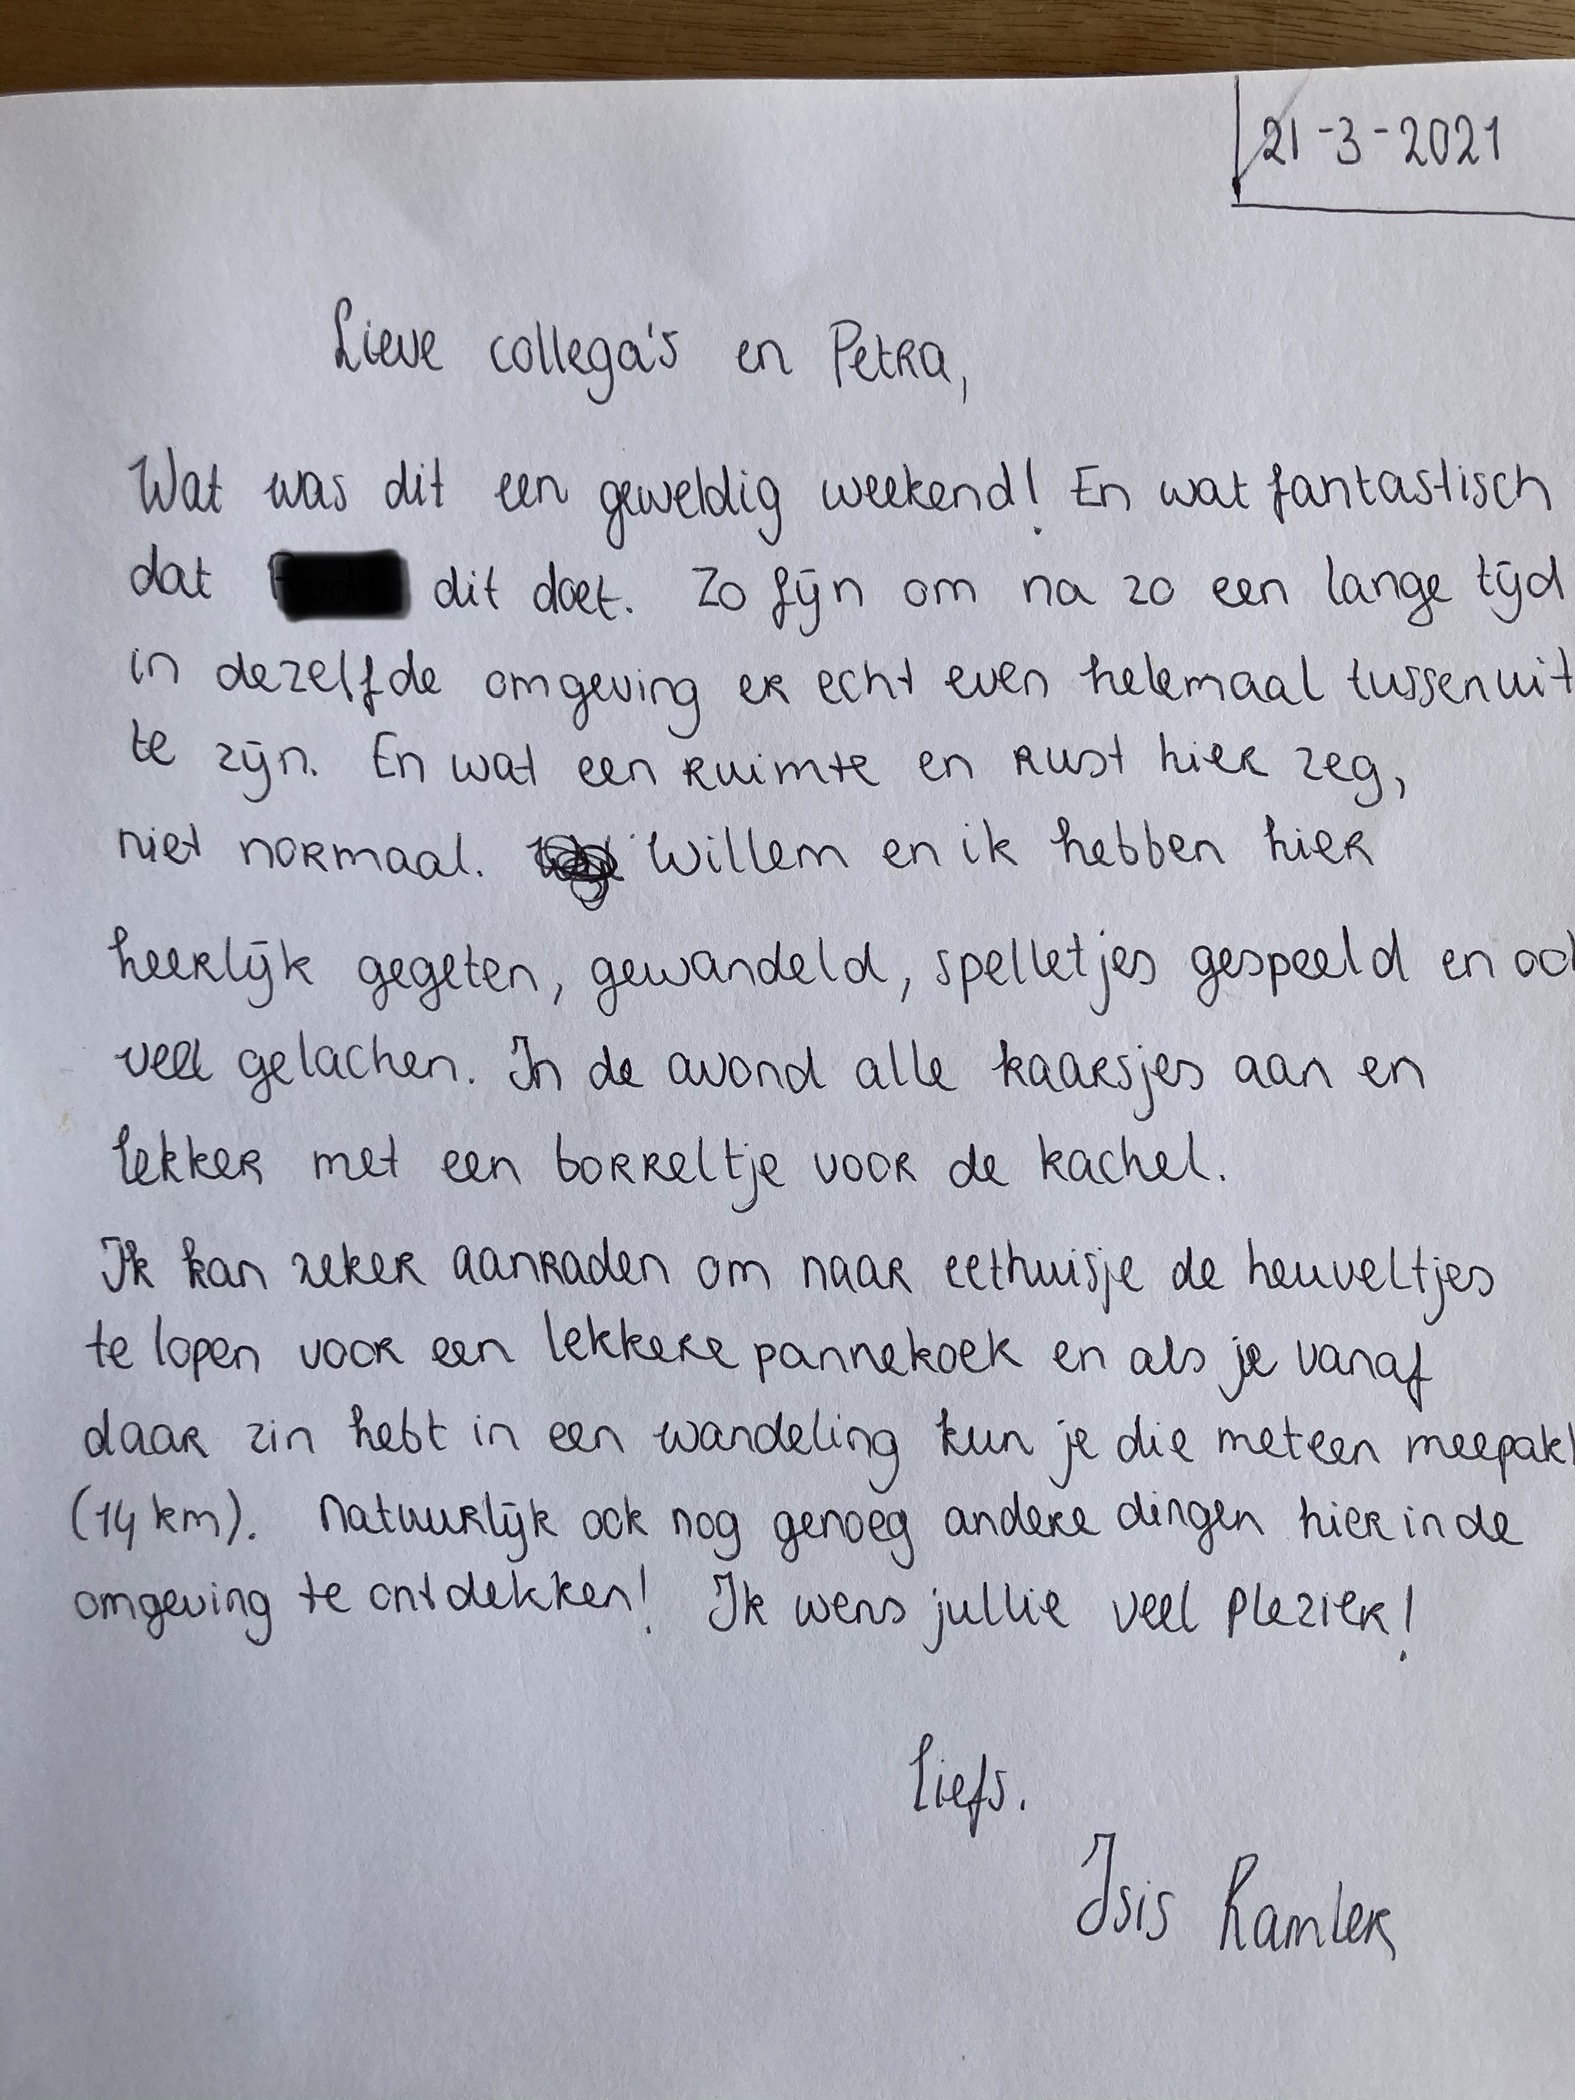 21-3-2021
Lieve collega's en Petra,
Wat was dit een geweldig weekend! En wat fantastisch
dat dit doet. Zo fijn om na zo een lange tijd
in dezelfde omgeving er echt even helemaal tussenuit
te zijn. En wat een ruimte en rust hier zeg,
niet normaal. Willem en ik hebben hier
heerlijk gegeten, gewandeld, spelletjes gespeeld en
veel gelachen. In de avond alle kaarsjes aan en
lekker met een borreltje voor de kachel.
Ik kan zeker aanraden om naar eethuisje de heuveltjes
te lopen voor een lekkere pannekoek en als je vanaf
daar zin hebt in een wandeling kun je die meteen meepak
(14 km). Natuurlijk ook nog genoeg andere dingen hier in de
omgeving te ontdekken! Ik wens jullie veel plezier!
Liefs.
Isis Ramler